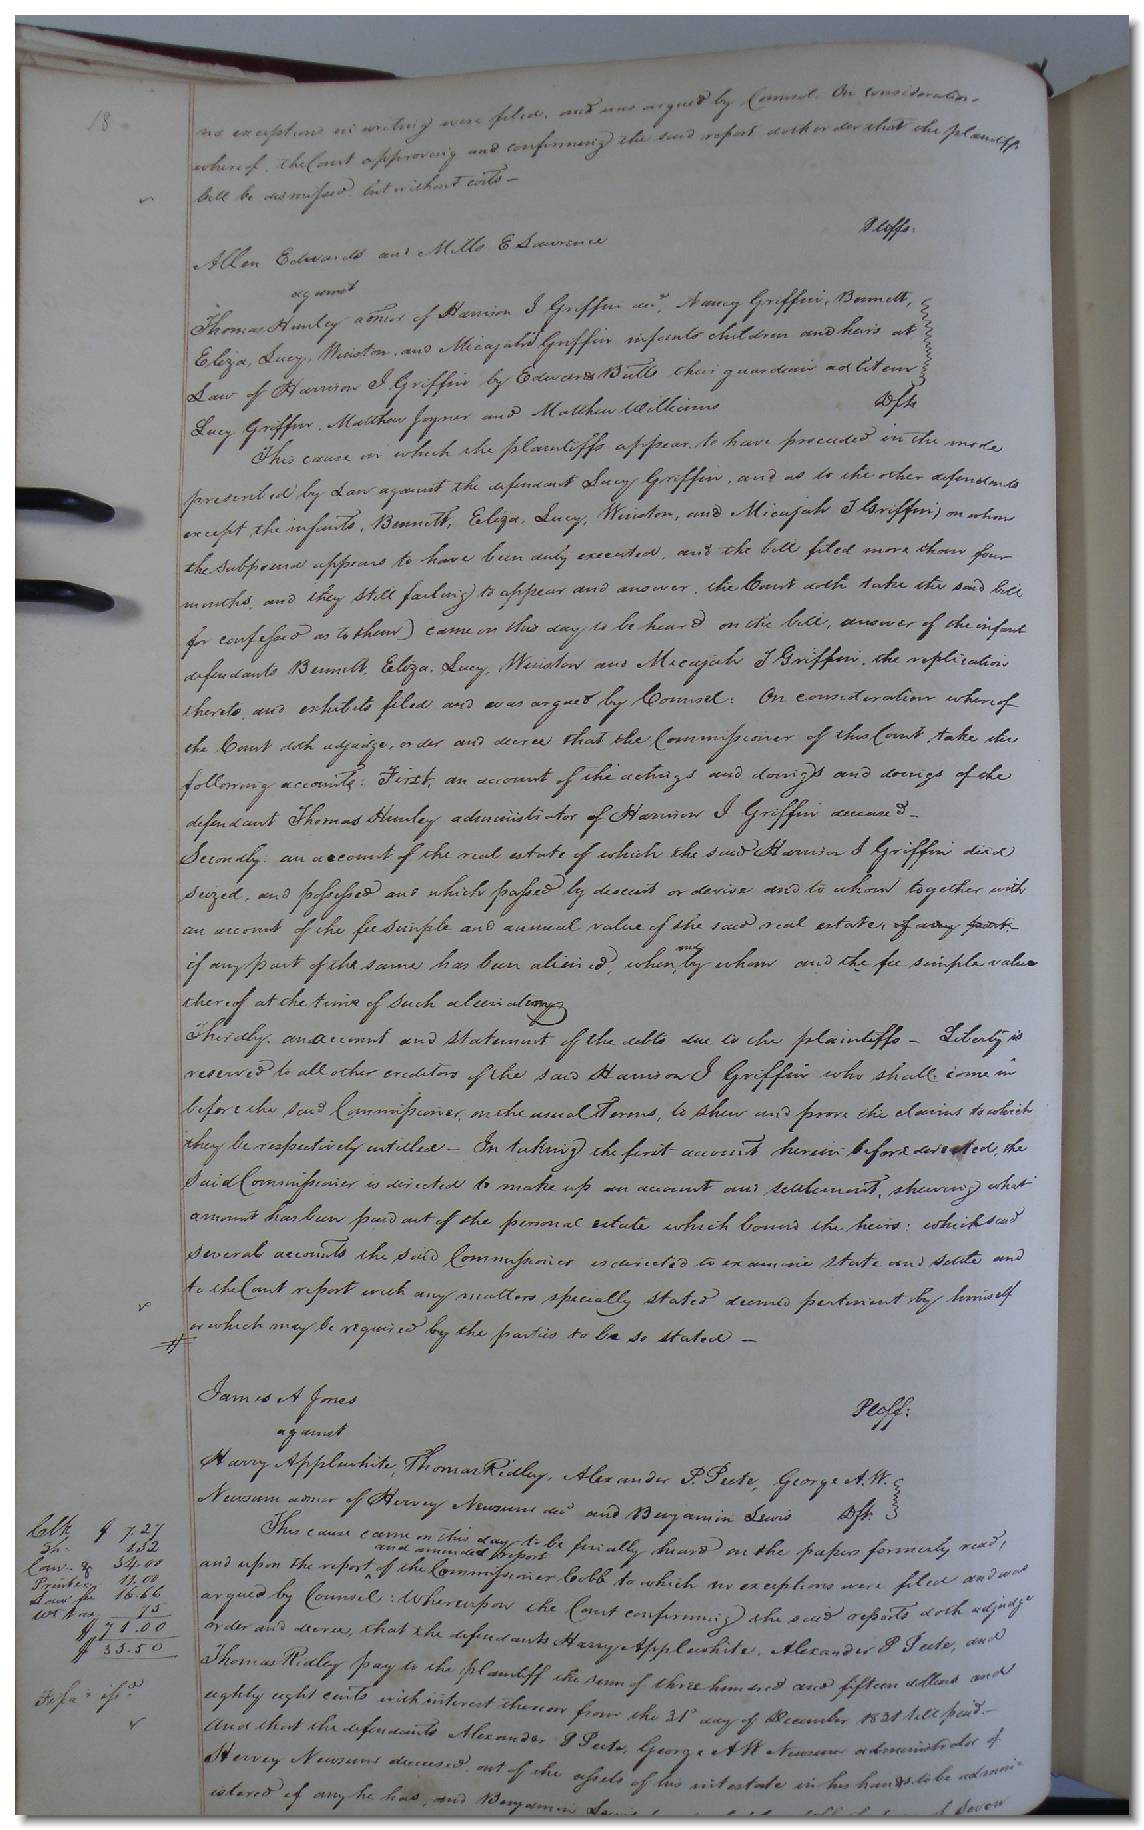 18
no exceptions in writing were filed, and was argued by Counsel. On consideration
whereof, the Court approving and confirming the said report doth order that the plaintiffs
bill be dismissed, but without costs —
Allen Edwards and Mills E Lawrence
Pltffs:
against
Thomas Hunley admor of Harrison I Griffin decd, Nancy Griffin, Bennett,
Eliza, Lucy, Winston, and Micajah Griffin infants children and heirs at
Law of Harrison I Griffin by Edward Butts their guardian ad litem
Lucy Griffin, Matthew Joyner and Matthew Williams
Dfts
This cause in which the plaintiffs appear to have proceeded in the mode
prescribed by Law against the defendant Lucy Griffin, and as to the other defendants
except the infants, Bennett, Eliza, Lucy, Winston, and Micajah T Griffin) on whom
the subpoena appears to have been duly executed, and the bill filed more than four
months, and they still failing to appear and answer, the Court doth take the said bill
for confessed as to them) came on this day to be heard on the bill, answer of the infant
defendants Bennett, Eliza, Lucy, Winston and Micajah T Griffin, the replication
thereto, and exhibits filed and was argued by Counsel: On consideration whereof
the Court doth adjudge, order and decree that the Commissioner of this Court, take the
following accounts: First, an account of the actings and doings and doings of the
defendant Thomas Hunley administrator of Harrison I Griffin deceased —
Secondly: an account of the real estate of which the said Harrison I Griffin died
seized, and possessed and which passed by descent or devise and to whom together with
an account of the fee simple and annual value of the said real estate, of any part
if any part of the same has been aliened, when, and by whom and the fee simple value
thereof at the time of such aliening
Thirdly. an account and statement of the debts due to the plaintiffs — Liberty is
reserved to all other creditors of the said Harrison I Griffin who shall come in
before the said Commissioner, on the usual Terms, to shew and prove the claims to which
they be respectively entitled — In taking the first account herein before directed, the
said Commissioner is directed to make up an account and settlement, shewing what
amount has been paid out of the personal estate which bound the heirs: which said
several accounts the said Commissioner is directed to examine state and settle and
to the Court report with any matters specially stated deemed pertinent by himself
or which may be required by the parties to be so stated —
James A Jones
Pltff:
against
Harry Applewhite, Thomas Ridley, Alexander P. Peete, George A. W.
Newsum admor of Hervey Newsum decd and Benjamin Lewis
Dfts:
This cause came on this day to be finally heard on the papers formerly read,
and amended report
and upon the report of the Commissioner Cobb to which no exceptions were filed and was
argued by Counsel: Whereupon the Court confirming the said reports doth adjudge
order and decree, that the defendants Harry Applewhite, Alexander P Peete, and
Thomas Ridley pay to the plaintiff the sum of three hundred and fifteen dollars and
eighty eight cents with interest thereon from the 31st day of December 1831 till paid —
And that the defendants Alexander P Peete, George A W Newsum administrator of
Hervey Newsum deceased, out of the assets of his intestate in his hands to be admin-
istered if any he has, and Benjamin Lewis
Clk $ 7.27
Sh. 1.32
Com. $ 34.00
Printer 11.00
Law. fee 16.66
Wt tax 75
$ 71.00
$ 35.50